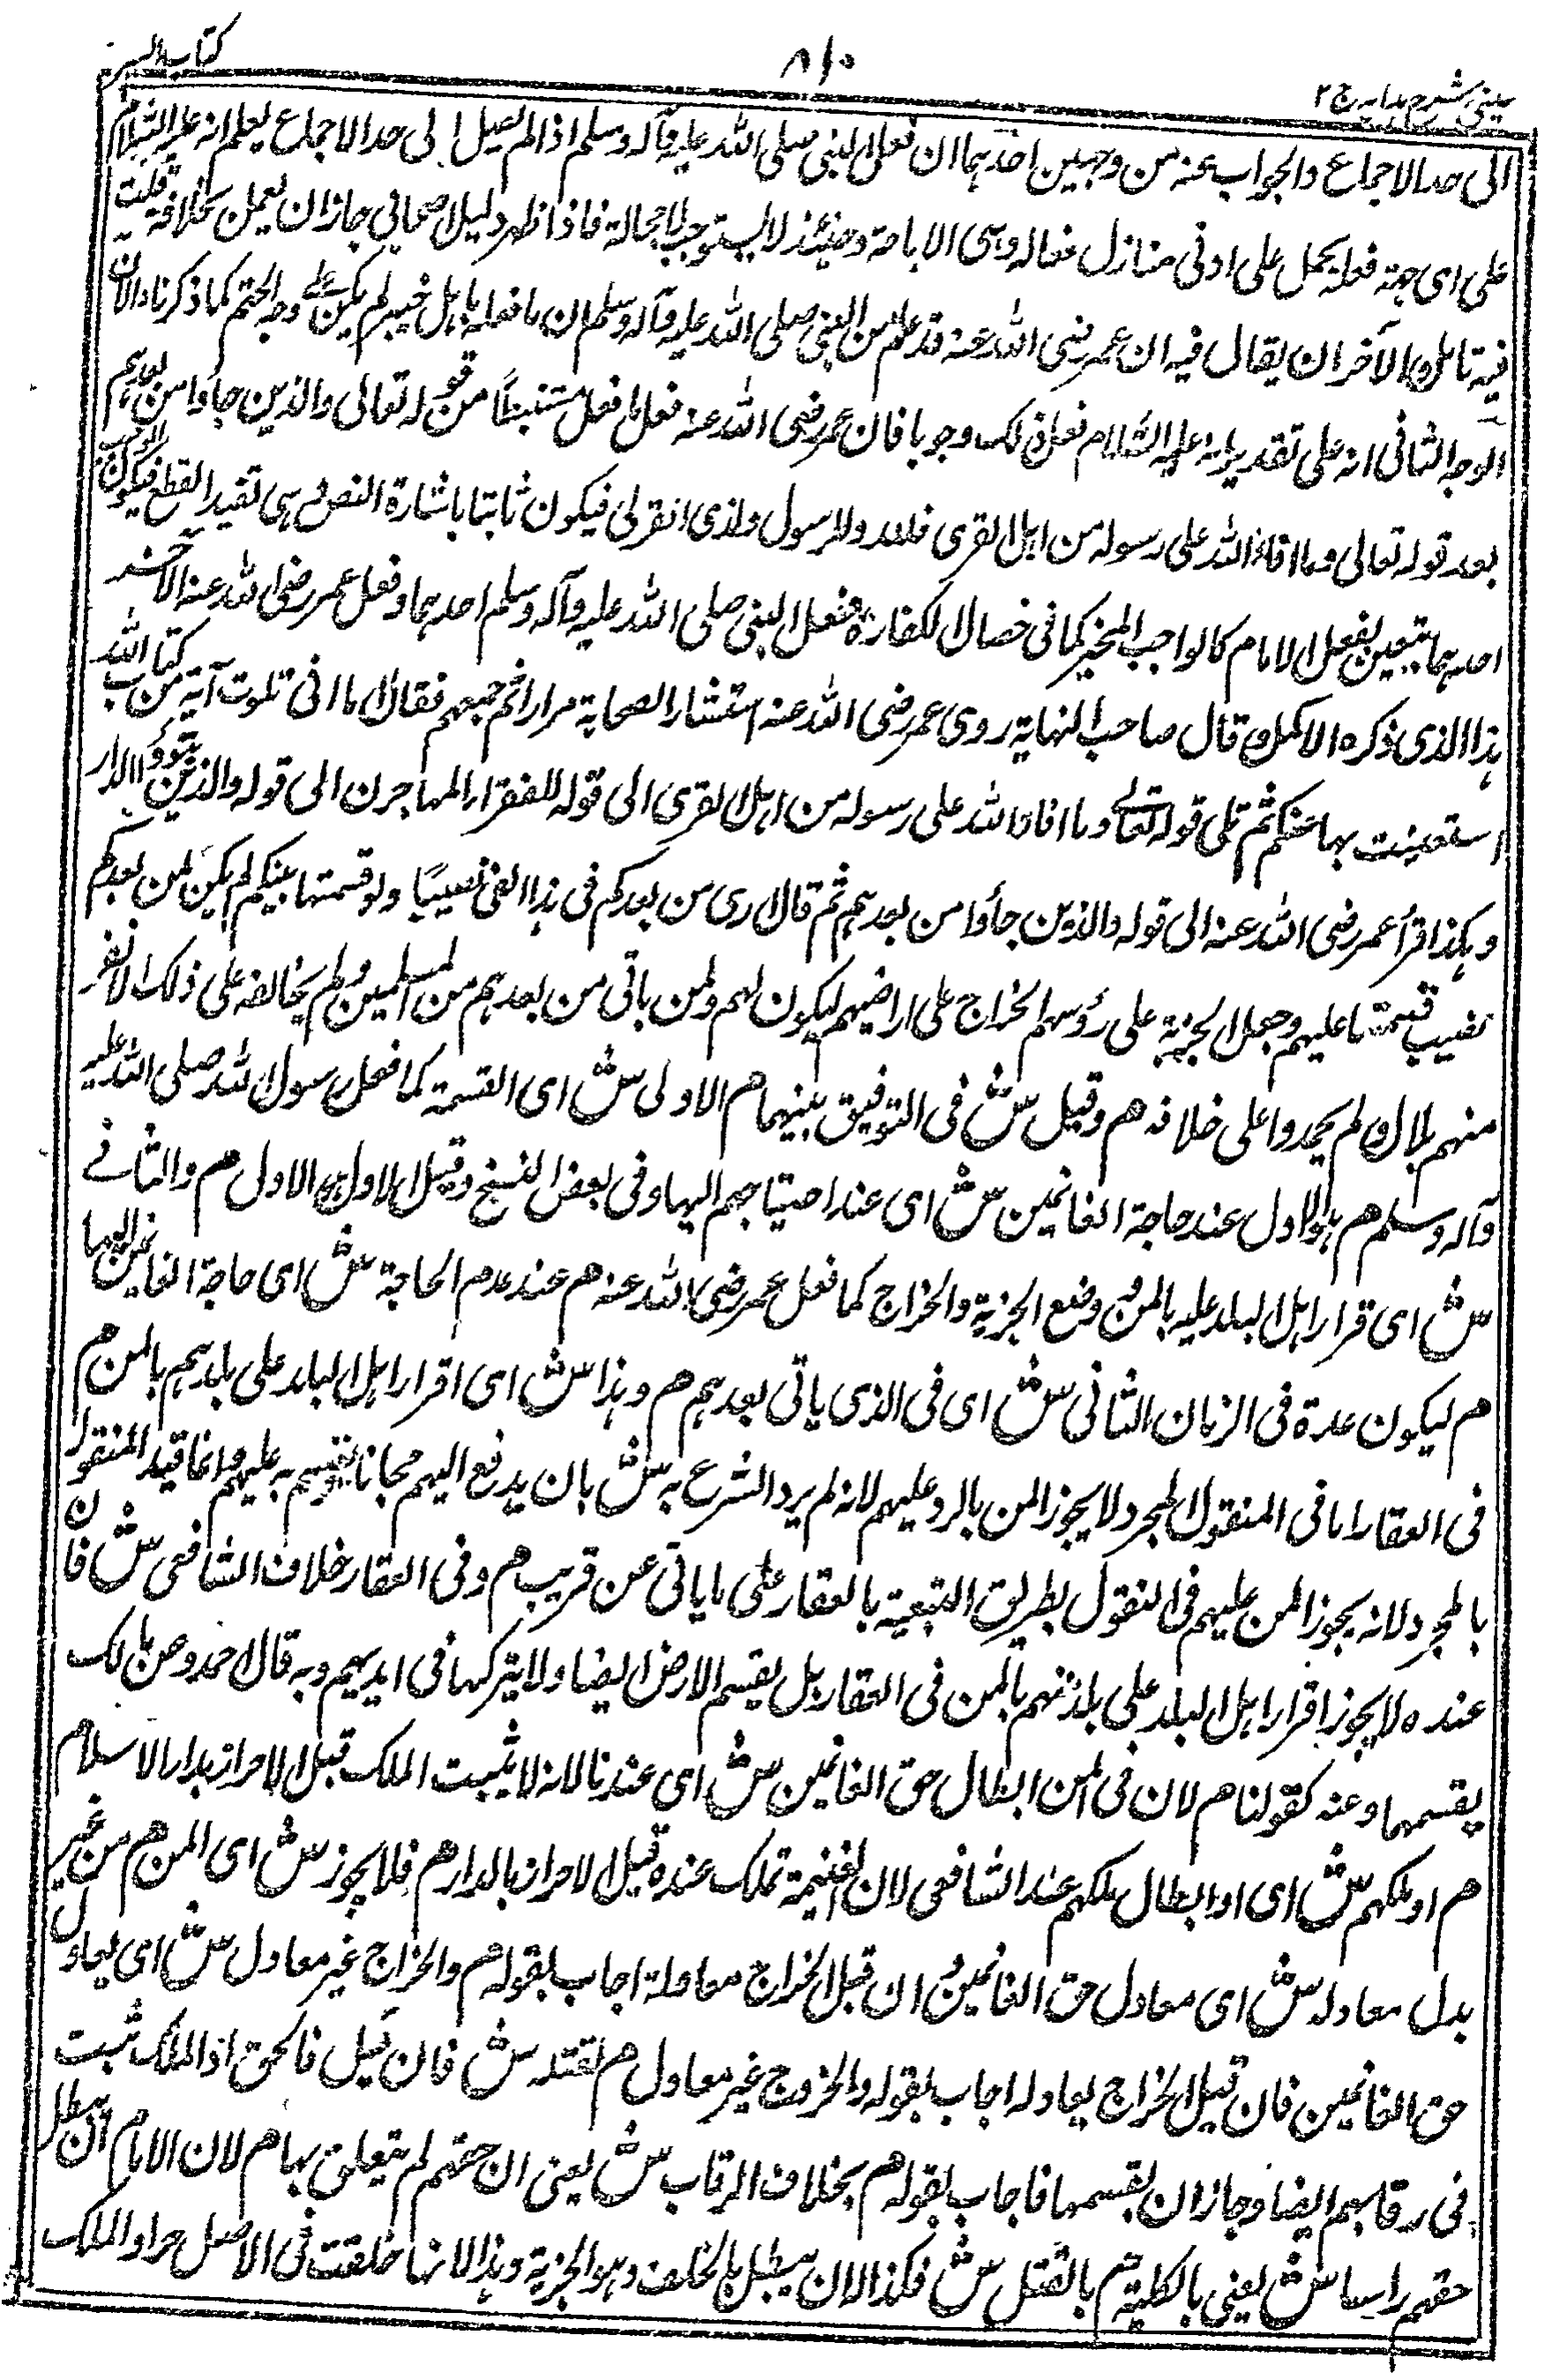 عینی شرح ہدایہ ج ۲
۸۱۰
کتاب السیر
الى حد الاجماع والجواب عنه من وجهين احدهما ان فعل النبى صلى الله عليه وآله وسلم اذا لم يصل الى حد الاجماع ليعلم انه عليه السلام
على اى جهة فعله يحمل على ادنى منازل فعاله وهى الاباحة وحينئذ لا يستوجب لامحالة فاذا ظهر دليل لاصحابى جاز ان يعمل بخلافه قلت
فيه تامل والآخر ان يقال فيه ان عمر رضى الله عنه قد علم من النبى صلى الله عليه وآله وسلم ان ما فعله باهل خيبر لم يكن على وجه الحتم كما ذكرنا الآن
الوجه الثانى انه على تقدير انه عليه السلام فعل ذلك وجوبا فان عمر رضى الله عنه فعل ما فعل مستنبطاً من قوله تعالى والذين جاؤا من بعدهم
بعد قوله تعالى وما افاء الله على رسوله من اهل القرى فلله وللرسول ولذى القربى فيكون ثابتا باشارة النص وهى تفيد القطع فيكون الواجب
احدهما يتعين بفعل الامام كالواجب المخير كما فى خصال الكفارة ففعل النبى صلى الله عليه وآله وسلم احدهما وفعل عمر رضى الله عنه الآخر
هذا الذى ذكره الاكمل وقال صاحب النهاية روى عمر رضى الله عنه استشار الصحابة مرارا ثم جمعهم فقال اما انى تلوت آية من كتاب الله
استغنيت بها عنكم ثم تلى قوله تعالى وما افاء الله على رسوله من اهل القرى الى قوله للفقراء المهاجرين الى قوله والذين تبوؤا الدار
وهكذا قرأ عمر رضى الله عنه الى قوله والذين جاؤا من بعدهم ثم قال ارى من بعدكم فى هذا الفئ نصيباً ولو قسمتها بينكم لم يكن لمن بعدكم
نصيب قسمة ما عليهم وجعل الجزية على رؤسهم الخراج على اراضيهم ليكون لهم ولمن ياتى من بعدهم من المسلمين ولم يخالفه على ذلك الا نفر
منهم بلال ولم يحمدوا على خلافه م وقيل ش فى التوفيق بينهما م الاولى ش اى القسمة كما فعل رسول الله صلى الله عليه
وآله وسلم م هو الاول عند حاجة الغانمين ش اى عند احتياجهم اليها وفى بعض النسخ وقيل الاول هو الاول م والثانى
ش اى قرار اهل البلد عليه بالمن وفى وضع الجزية والخراج كما فعل عمر رضى الله عنه م عند عدم الحاجة ش اى حاجة الغانمين اليها
م ليكون عدة فى الزمان الثانى ش اى فى الذى ياتى بعدهم م وهذا ش اى اقرار اهل البلد على بلدهم بالمن م
فى العقار اما فى المنقول المجرد لا يجوز المن بالرد عليهم لانه لم يرد الشرع به ش بان يدفع اليهم مجانا ينعم به عليهم وانما قيد المنقول
بالمجرد لانه يجوز المن عليهم فى المنقول بطريق التبعية بالعقار على ما ياتى عن قريب م وفى العقار خلاف الشافعى ش فان
عنده لا يجوز اقرار اهل البلد على بلدهم بالمن فى العقار بل يقسم الارض ايضا ولا يتركها فى ايديهم وبه قال احمد وعن مالك
يقسمها وعنه كقولنا م لان فى المن ابطال حق الغانمين ش اى عندنا لانه لا يثبت الملك قبل الاحراز بدار الاسلام
م او ملكهم ش اى او ابطال ملكهم عند الشافعى لان الغنيمة تملك عنده قبل الاحراز بالدار م فلا يجوز ش اى المن م من غير
بدل معادله ش اى معادل حق الغانمين وان قبل الخراج معادلة اجاب بقوله م والخراج غير معادل ش اى يعادل
حق الغانمين فان قيل الخراج يعادله اجاب بقوله والخروج غير معادل م لقتله ش فان قيل فالحق اذ الملك ثبت
فى رقابهم ايضا وجاز ان يقسمها فاجاب بقوله م بخلاف الرقاب ش يعنى ان حقهم لم يتعلق بها م لان الامام ان يبطل
حقهم راسا ش يعنى بالكلية م بالقتل ش فكذا لان يبطل بالخلف وهو الجزية وهذا لانها خلقت فى الاصل حرا والملك